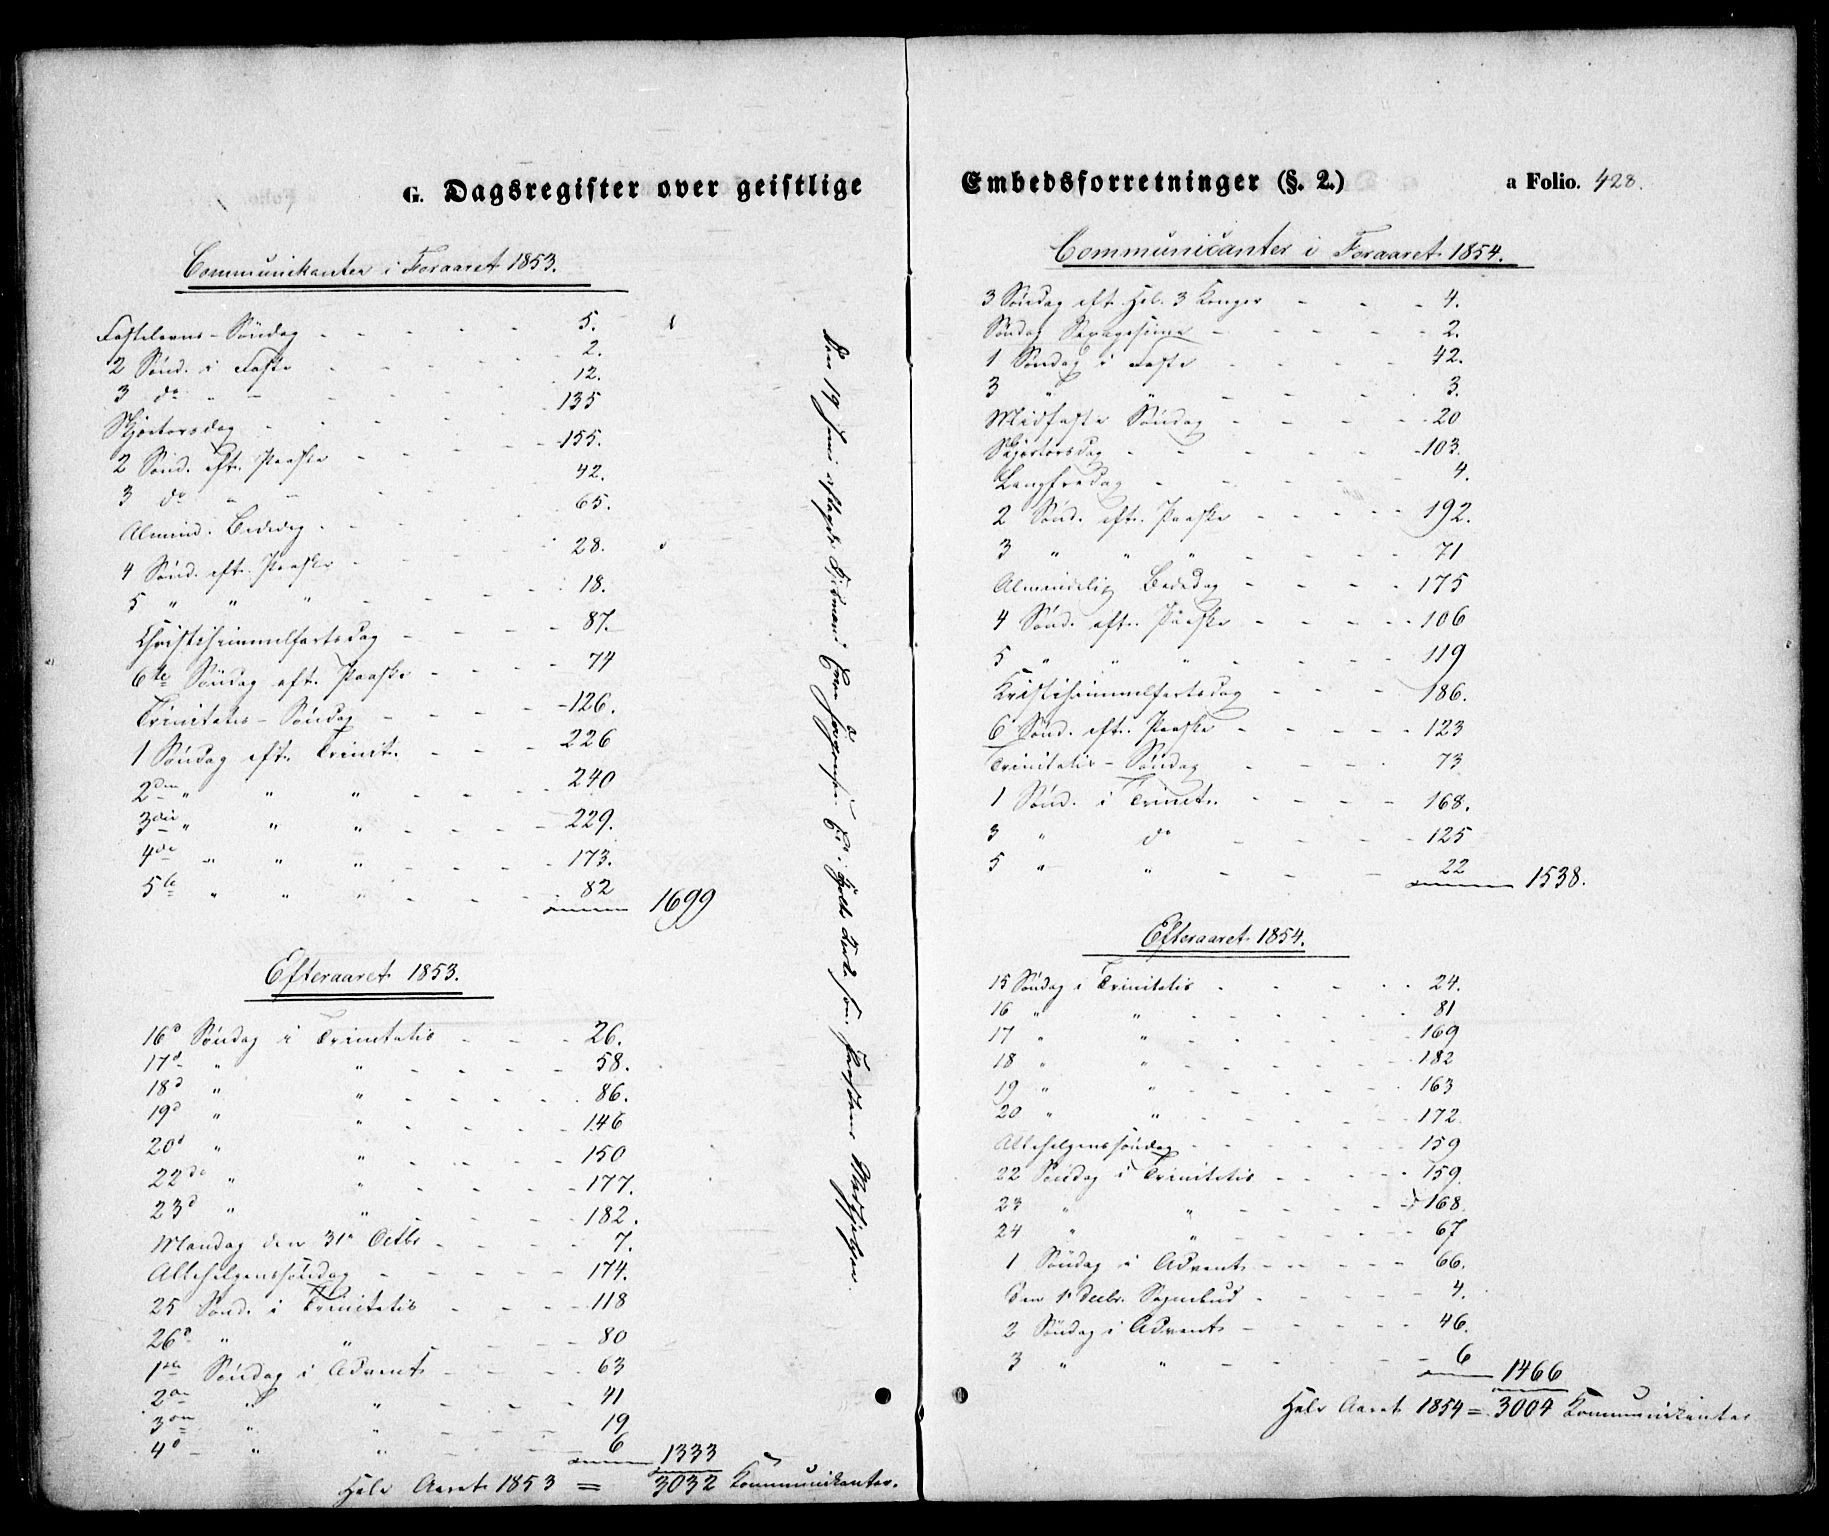 G. Dagsregister over geistlige
Communikanter i Foraaret 1853.
Fastelavns-Søndag - - - - 5.
2 Sønd. i Faste - - - - 2.
3 do " - - - - 12.
Skjærtorsdag - - - - 135
2 Sønd. eft. Paaske - - - - 155.
3 do " " - - - - 42.
Almind. Bededag - - - - 65.
4 Sønd. eft. Paaske - - - - 28.
5 " " " - - - - 18.
Christihimmelfartsdag - - - - 87.
6te Søndag eft. Paaske - - - - 74
Trinitatis-Søndag - - - - 126.
1 Søndag eft. Trinit. - - - 226
2den " " " - - - - 240
3die " " " - - - - 229.
4de " " " - - - - 173.
5te " " " - - - - 82
1699
Efteraaret 1853.
16d Søndag i Trinitatis - - - 26.
17d " " - - - - 58.
18d " " - - - - 86.
19d " " - - - - 146
20d " " - - - - 150
22de " " - - - - 177.
23d " " - - - - 182.
Mandag den 31e Octbr - - - - 7.
Allehelgenssøndag - - - - 174.
25 Sønd. i Trinitatis - - - - 118
26d " " - - - - 80
1ste Søndag i Advent - - - 63
2den " " - - - - 41
3den " " - - - - 19
4d " " - - - - 6
1333
Hele Aaret 1853 = 3032 Kommunikanter.
Den 19 Juni aflagde
Embedsforretninger (§. 2.) a Folio. 428.
Communicanter i Foraaret 1854.
3 Søndag eft. Hel. 3 Konger - - - 4.
Søndag Sexagesima - - - - 2.
1 Søndag i Faste - - - - 42.
3 " " - - - - 3.
Midfaste Søndag - - - - 20
Skjærtorsdag - - - - 103.
Langfredag - - - - 4.
2 Sønd. eft. Paaske - - - - 192.
3 " " " - - - - 71
Almindelig Bededag - - - - 175
4 Sønd. eft. Paaske - - - - 106
5 " " " - - - - 119
Kristihimmelfartsdag - - - - 186.
6 Sønd. eft. Paaske - - - - 123
Trinitatis-Søndag - - - - 73
1 Sønd. i Trinit. - - - - 168.
3 " do - - - - 125
5 " " - - - - 22
1538.
Efteraaret 1854.
15 Søndag i Trinitatis - - - - 24.
16 " " - - - - 81
17 " " - - - - 169
18 " " - - - - 182
19 " " - - - - 163
20 " " - - - - 172.
Allehelgenssøndag - - - - 159
22 Søndag i Trinitatis - - - - 159.
23 " " - - - - 168.
24 " " - - - - 67
1 Søndag i Advent - - - - 66.
Den 1e Decbr. Sognebud - - - - 4.
2 Søndag i Advent - - - - 46.
3 " " - - - - 6
1466
Hele Aaret 1854 = 3004 Kommunikanter